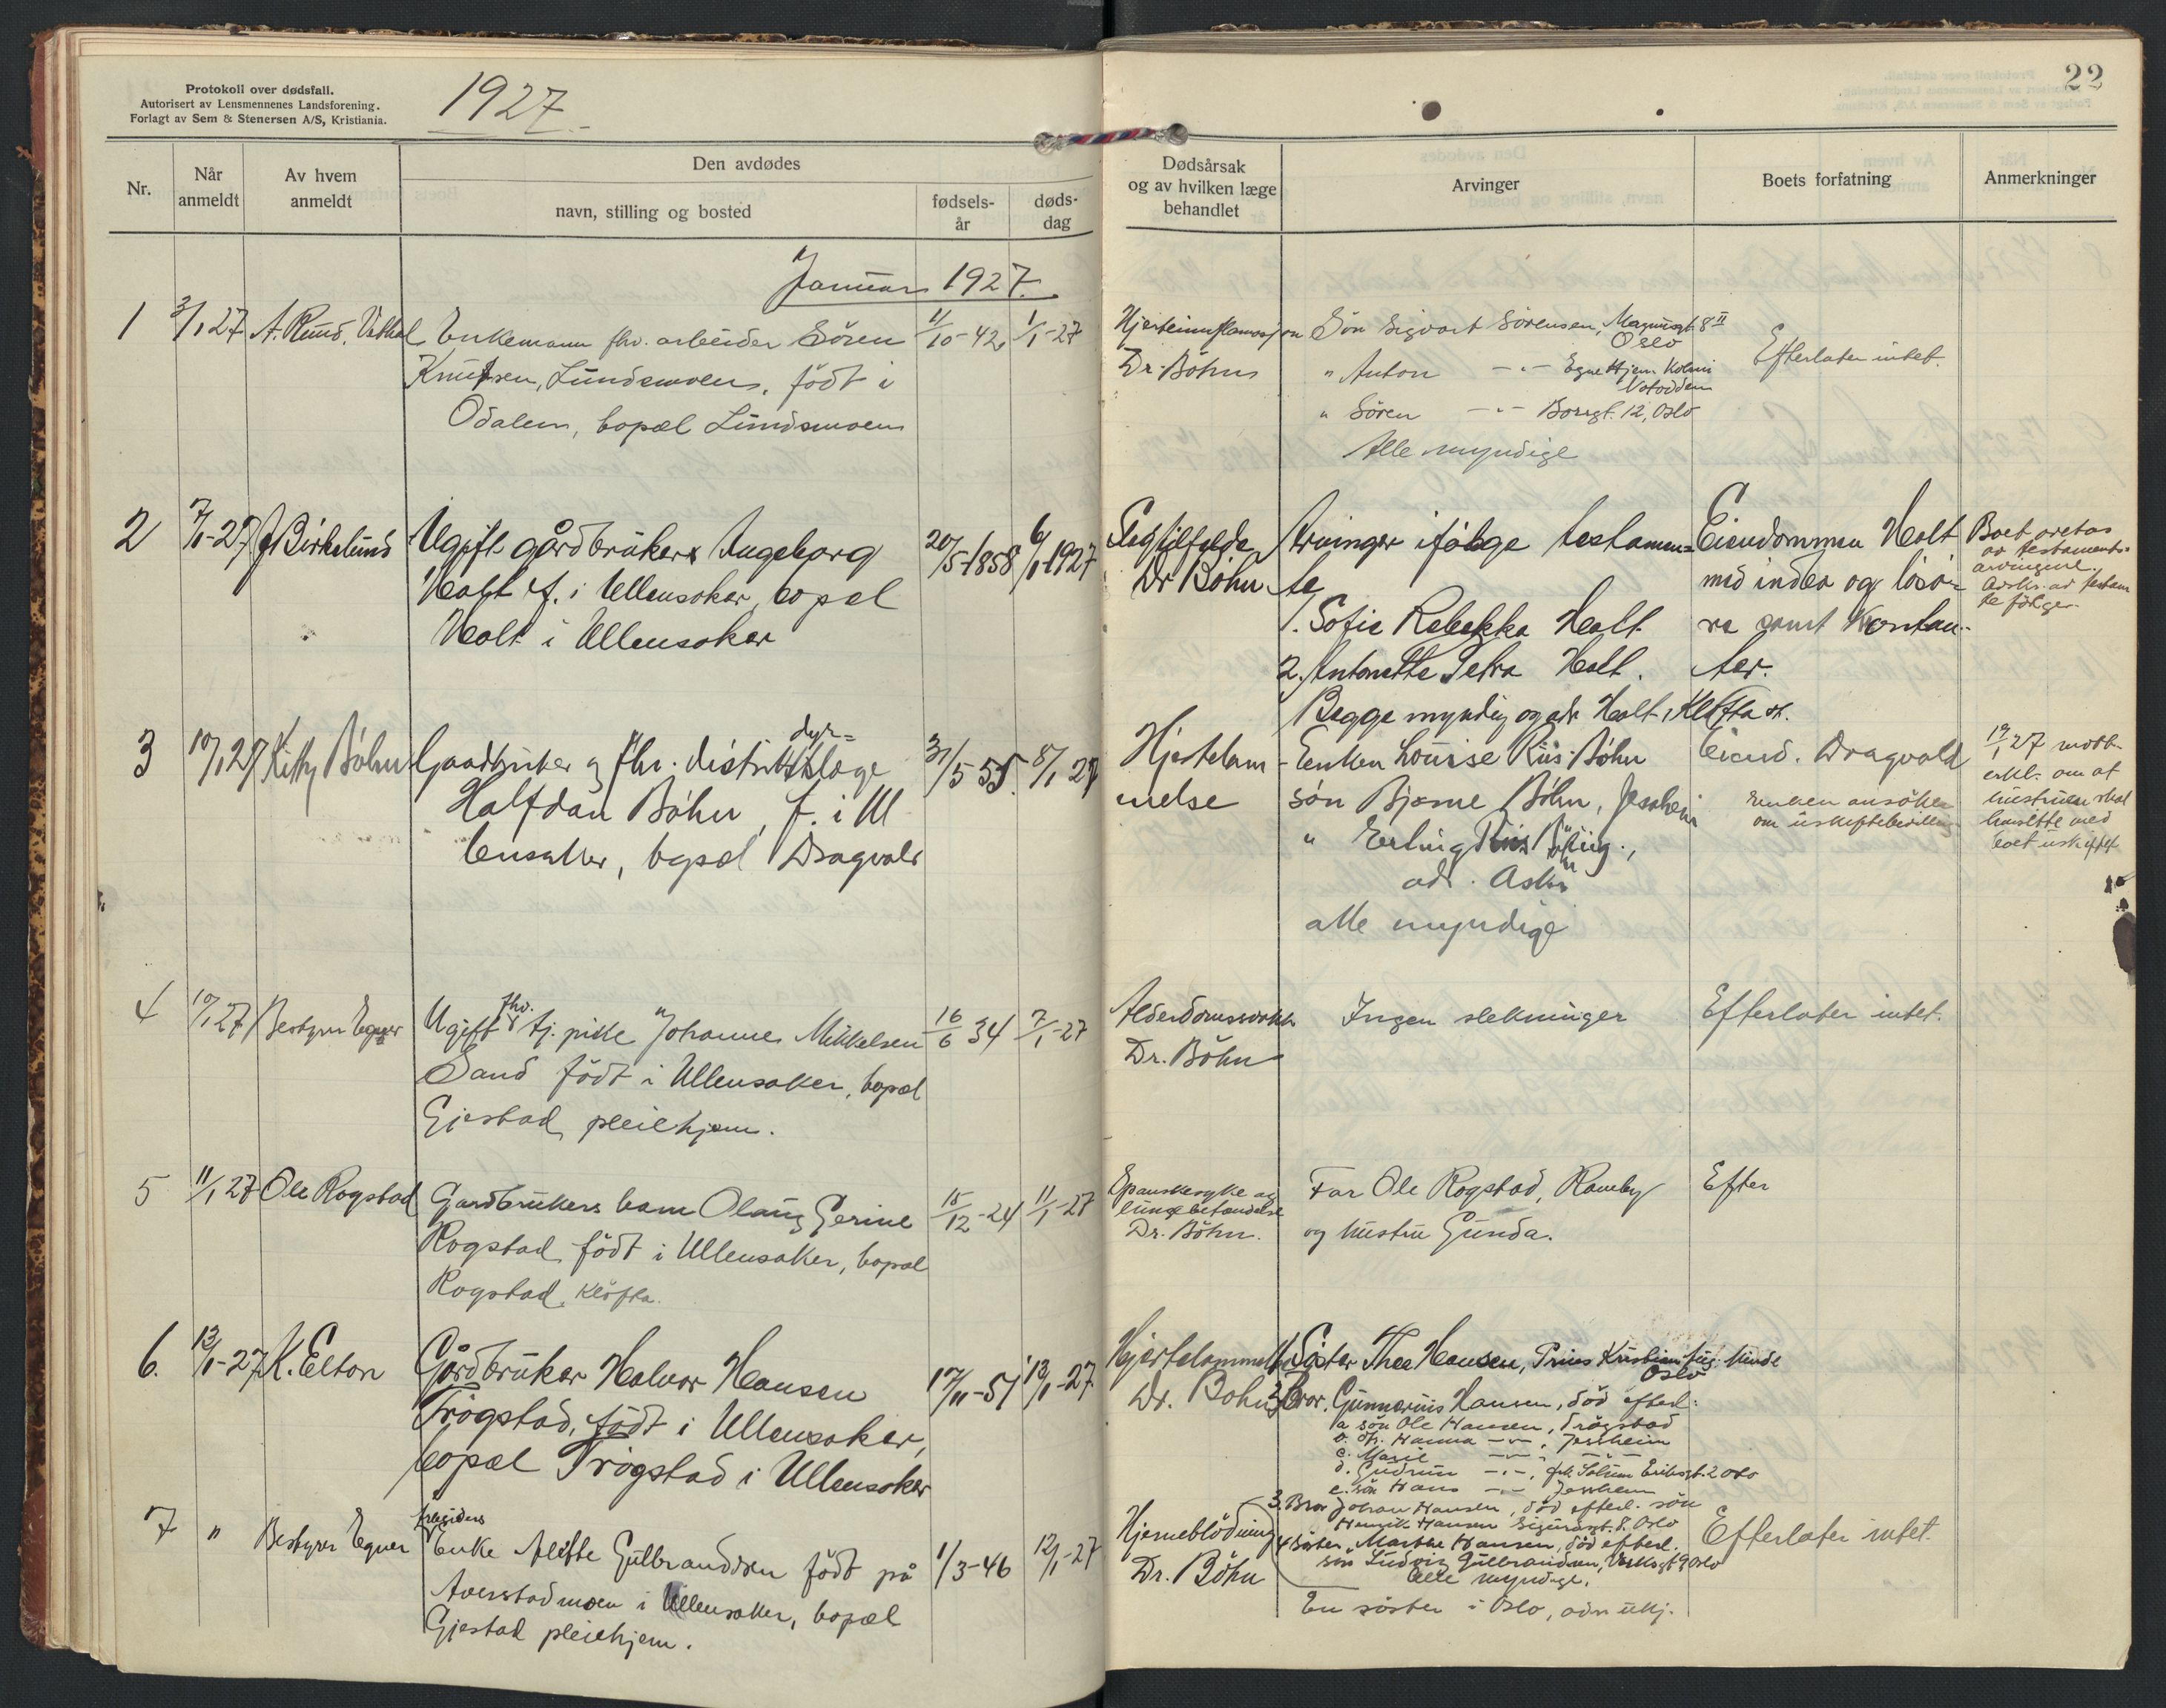 Protokoll over dødsfall.
Autorisert av Lensmennenes Landsforening.
Forlagt av Sem & Stenersen A/S, Kristiania.
1927
22
Nr.
Når anmeldt
Av hvem anmeldt
Den avdødes
navn, stilling og bosted
fødsels-år
døds-dag
Dødsårsak og av hvilken læge behandlet
Arvinger
Boets forfatning
Anmerkninger
Januar 1927.
1 3/1 27 A. Ruud, Vethal
Enkemann fhv. arbeider Sören
Knutsen, Lundsmoen, född i
Odalen, bopæl Lundsmoen
11/10-42 1/1-27
Hjerteinflamasjon
Dr. Böhn
Sön Sigvart Sörensen, Magnusgt. 8 II
Oslo
" Anton -"- Egne Hjem Koloni
Notodden
" Sören -"- Borggt. 12, Oslo
Alle myndige
Efterlater intet.
2 7/1-27 J. Birkelund
Ugift gårdbruker Ingeborg
Holt f. i Ullensaker, bopæl
Holt i Ullensaker
20/5-1858 6/1-1927
Slagtilfelde
Dr Böhn
Arvinger ifölge testamen=
te
1. Sofie Rebekka Holt
2. Antonette Petra Holt.
Begge myndig og adr. Holt, Kløfta st.
Eiendommen Holt
med indbo og lösö-
re samt kontan-
ter.
Boet overtas
av testaments-
arvingene.
Avskr. av testam
te fölger.
3 10/1 27 Kitty Böhn
Gaardbruker og fhv. distriktsdyr=læge
Halfdan Böhn, f. i Ul
lensaker, bopæl Dragvold
31/5 55. 8/1 27
Hjertelam
melse
Enken Louise Riis Böhn
sön Bjarne Böhn, Jessheim
" Erling Riis Böhn,
adr. Ask
alle myndige
Eiend. Dragvold
Enken ansöker
om uskiftebevilling
19/1 27 mott.
erkl. om at
hustruen skal
hensitte med
boet uskiftet
4 10/1 27 Bestyrer Egner
Ugift fhv. tj. pike Johanne Mikkelsen
Sand född i Ullensaker, bopæl
Gjestad pleiehjem.
16/6 34 7/1-27
Alderdomssvakh
Dr. Böhn
Ingen slektninger
Efterlater intet.
5 11/1 27 Ole Rogstad
Gardbrukers barn Olaug Gerine
Rogstad född i Ullensaker, bopæl
Rogstad, Klöfta.
15/12-24 11/1-27
Spanskesyke og
lungebetendelse
Dr. Böhn.
Far Ole Rogstad, Romby
og hustru Gunda.
Efter
6. 13/1-27 K. Elton
Gårdbruker Halvor Hansen
Trögstad, födt i Ullensaker,
bopæl Trögstad i Ullensaker
17/11-51 12/1-27
Hjertelammelse
Dr. Böhn
1. Söster Thea Hansen, Prins Kristian Aug. Minde
Oslo
2. Bror, Gunnerius Hansen, död efterl:
a. sön Ole Hansen, Trögstad
b. dtr. Hanna -"-, Jessheim
c. Marie -"-
d. Gudrun -"-, Eriksgt. 2 Oslo
e. sön Hans -"- Jessheim
3. Bror Johan Hansen, död efterl. sön
Henrik Hansen Sigurdsgt. 8. Oslo
4 Söster Marthe Hansen, död efterl.
sön Ludvig Gulbrandsen, Verksgt 9 Oslo
Alle myndige.
7 " Bestyrer Egner
Arbeiders
Enke Alette Gulbrandsen född på
Averstadmoen i Ullensaker, bopæl
Gjestad pleiehjem.
1/3-46 12/1-27
Hjerneblödning
Dr. Böhn
En söster i Oslo, adr. ukj.
Efterlater intet.